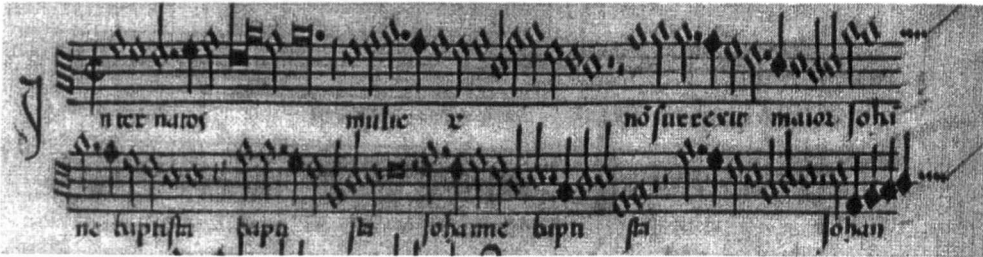 Inter natos mulie r nō surrexit maior Johā
ne baptista bapti sta Johanne bapti sta Johan